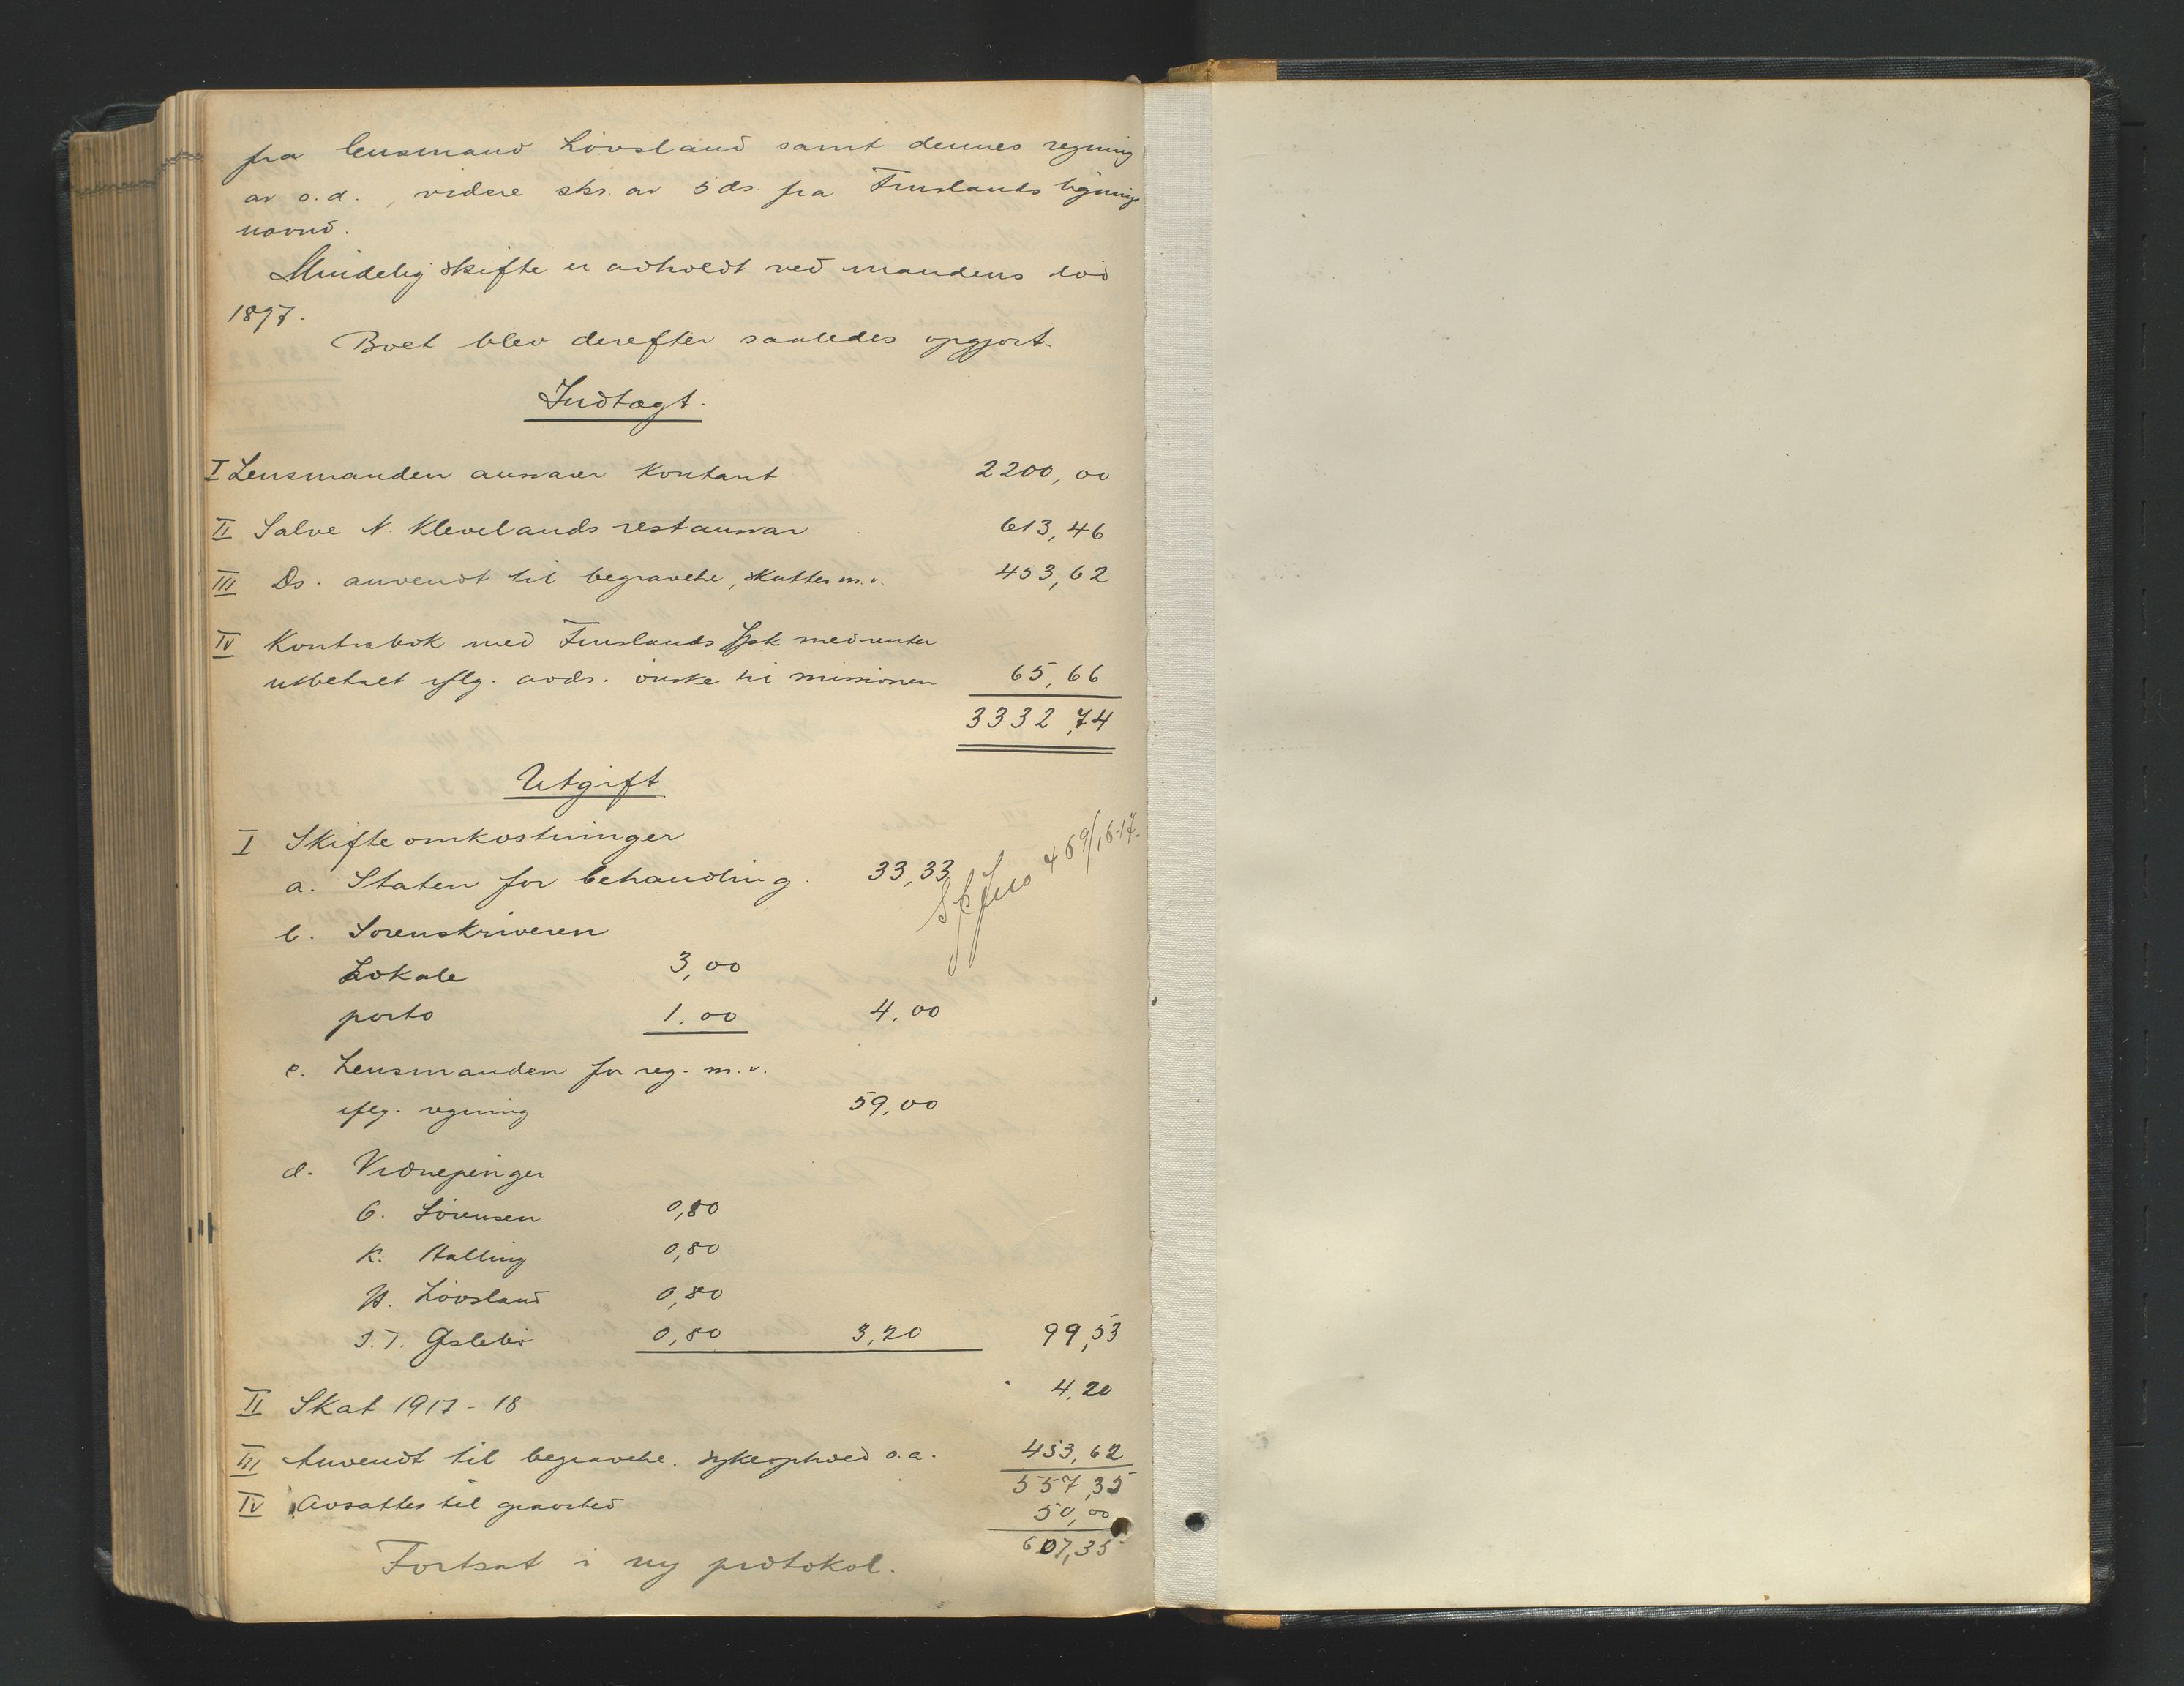 fra lensmand Lövsland samt dennes regning
av s.d., videre skr. av 5 ds. fra Finslands lignings
nævnd.
Mindelig skifte er avholdt ved mandens död
1897.
Boet blev derefter saaledes opgjort.
Indtægt.
I Lensmanden ansvarer kontant 2200,00
II Salve N. Klevelands restansvar 613,46
III Ds. anvendt til begravelse, skatter m.v. 453,62
IV Kontrabok med Finslands Spk med renter
utbetalt iflg. avds. önske til missionen 65,66
3332,74
Utgift
I Skifteomkostninger
a. Staten for behandling. 33,33
469/16-17.
b. Sorenskriveren
Lokale 3,00
porto 1,00 4,00
c. Lensmanden for reg. m.v.
iflg. regning 59,00
d. Vidnepenger
G. Sörensen 0,80
K. Halling 0,80
H. Lövsland 0,80
T. Øslebö 0,80 3,20 99,53
II Skat 1917-18 4,20
III Anvendt til begravelse, sykeophold o.a. 453,62
557,35
IV Avsættes til gravsted 50,00
607,35
Fortsat i ny protokol.